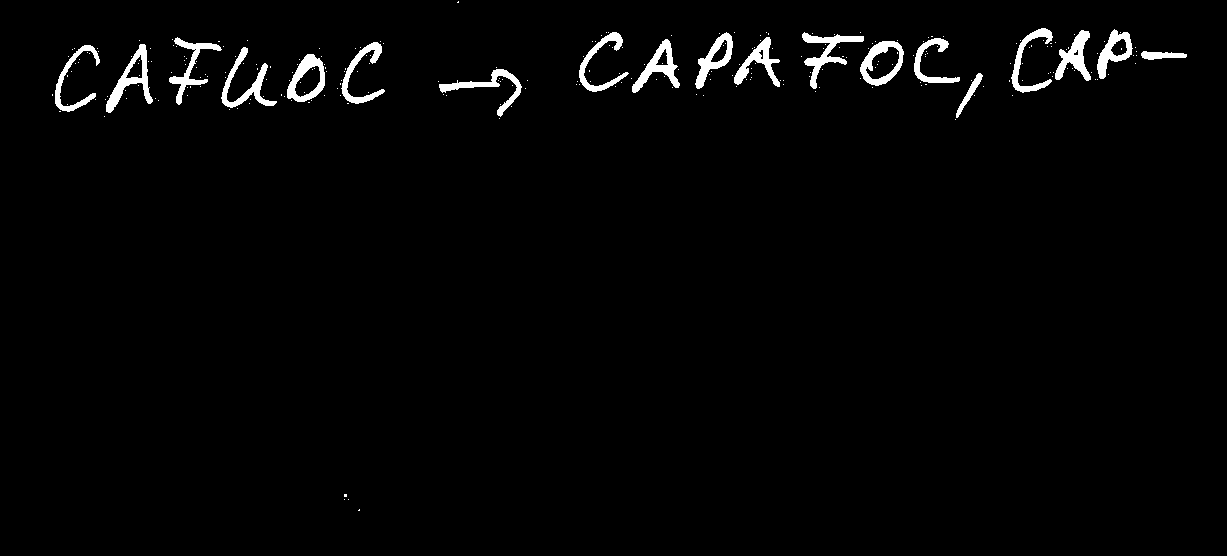 CAFUOC → CAPAFOC, CAP-